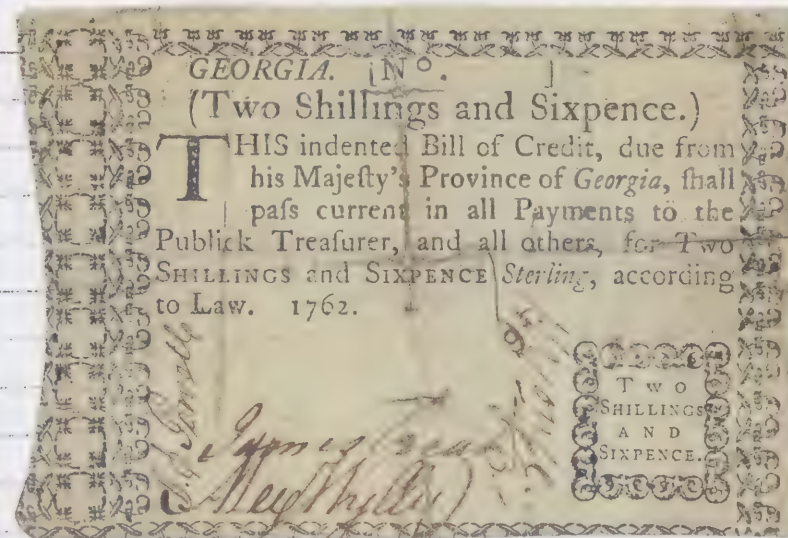 GEORGIA. [No. ]
(Two Shillings and Sixpence.)
THIS indented Bill of Credit, due from
his Majeſty's Province of Georgia, ſhall
paſs current in all Payments to the
Publick Treaſurer, and all others, for Two
SHILLINGS and SIXPENCE Sterling, according
to Law. 1762.
James
TWO
SHILLINGS
AND
SIXPENCE.